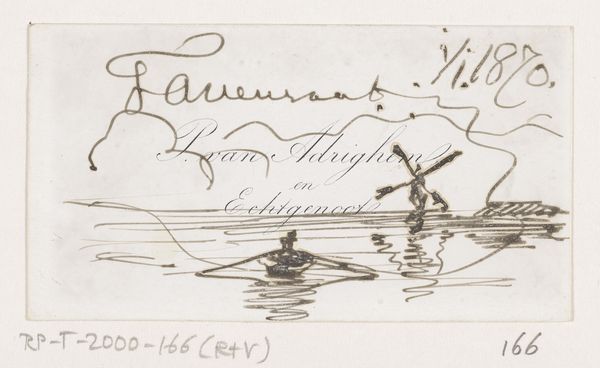 1/1.1870.
P. van Adrighem
en
Echtgenoot
RP-T-2000-166 (R+V)
166